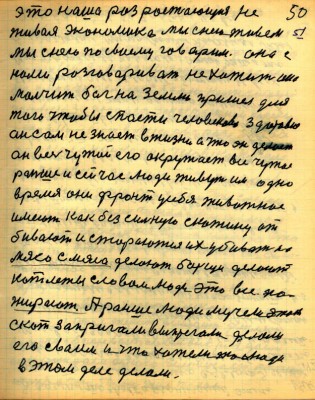 это наша розростающия не 50
живая экономика мы с нею живем 51
мы с нею по своему говорим. она с
нами розговариват не хотит она
молчит бог на Землю пришел для
того чтобы спасти человека Здоровью
он сам не знает в жизни а что он делает
он вес чужой его окружает все чужое
раньше и сейчас люди живут им одно
время они фронт у себя животное
имеют как без силную скотину от
бивают и стараются их убиват на
мясо с мяса делают борщи делают
котлеты словом люди это все по
жирают. А раньше люди мучели этот
скот запрягали выпрягали делали
его своим и что хотели это люди
в этом деле делали.